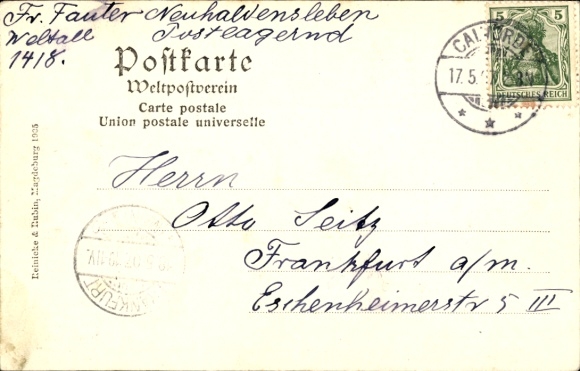 Fr. Fauter Neuhaldensleben
Weltall Postlagernd
1418.
Postkarte
Weltpostverein
Carte postale
Union postale universelle
5 5
DEUTSCHES REICH
CALVÖRDE
17.5.
Reinicke & Rubin, Magdeburg 1905
Herrn
Otto Seitz
Frankfurt a/m.
Eschenheimerstr 5 III
FRANKFURT